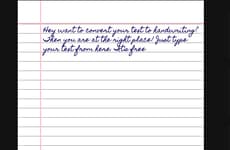 Hey want to convert your text to handwriting?
Then you are at the right place! Just type
your text from here. It's free